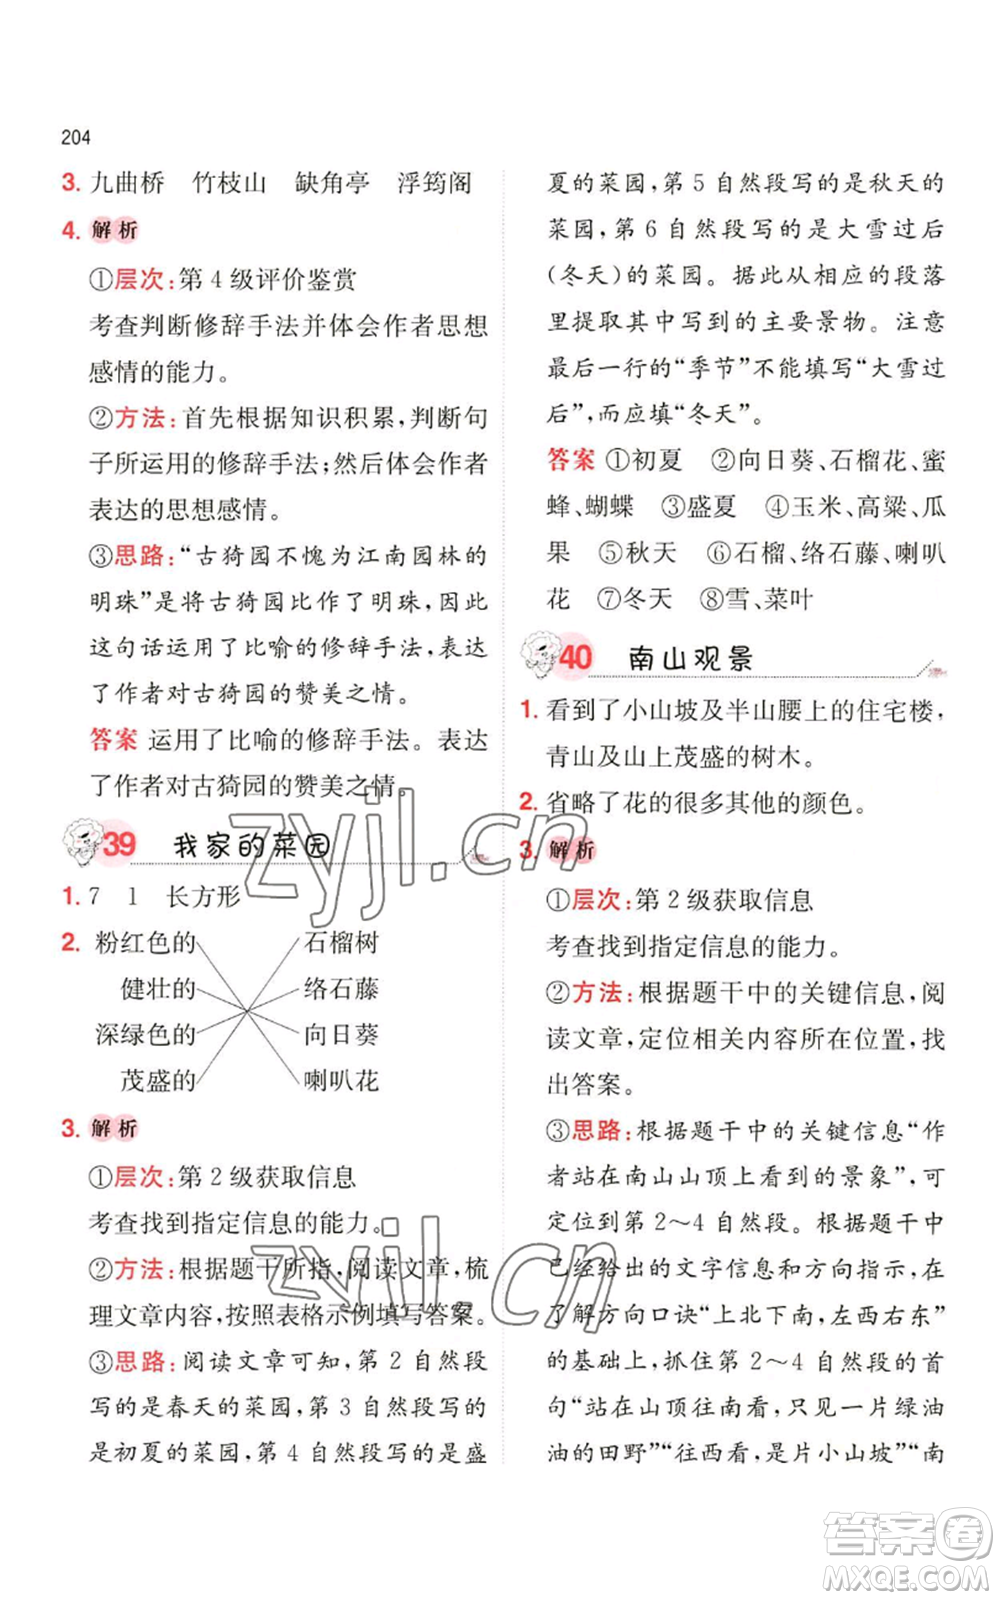 204
3. 九曲桥 竹枝山 缺角亭 浮筠阁
4. 解析
①层次:第4级评价鉴赏
考查判断修辞手法并体会作者思想
感情的能力。
②方法:首先根据知识积累,判断句
子所运用的修辞手法;然后体会作者
表达的思想感情。
③思路:“古猗园不愧为江南园林的
明珠”是将古猗园比作了明珠,因此
这句话运用了比喻的修辞手法,表达
了作者对古猗园的赞美之情。
答案 运用了比喻的修辞手法。表达
了作者对古猗园的赞美之情。
39 我家的菜园
1. 7 1 长方形
2. 粉红色的 石榴树
健壮的 络石藤
深绿色的 向日葵
茂盛的 喇叭花
3. 解析
①层次:第2级获取信息
考查找到指定信息的能力。
②方法:根据题干所指,阅读文章,梳
理文章内容,按照表格示例填写答案。
③思路:阅读文章可知,第2自然段
写的是春天的菜园,第3自然段写的
是初夏的菜园,第4自然段写的是盛
夏的菜园,第5自然段写的是秋天的
菜园,第6自然段写的是大雪过后
(冬天)的菜园。据此从相应的段落
里提取其中写到的主要景物。注意
最后一行的“季节”不能填写“大雪过
后”,而应填“冬天”。
答案 ①初夏 ②向日葵、石榴花、蜜
蜂、蝴蝶 ③盛夏 ④玉米、高粱、瓜
果 ⑤秋天 ⑥石榴、络石藤、喇叭
花 ⑦冬天 ⑧雪、菜叶
40 南山观景
1. 看到了小山坡及半山腰上的住宅楼,
青山及山上茂盛的树木。
2. 省略了花的很多其他的颜色。
3. 解析
①层次:第2级获取信息
考查找到指定信息的能力。
②方法:根据题干中的关键信息,阅
读文章,定位相关内容所在位置,找
出答案。
③思路:根据题干中的关键信息“作
者站在南山山顶上看到的景象”,可
定位到第2～4自然段。根据题干中
已经给出的文字信息和方向指示,在
了解方向口诀“上北下南,左西右东”
的基础上,抓住第2～4自然段的首
句“站在山顶往南看,只见一片绿油
油的田野”“往西看,是片小山坡”“南
zyjl.cn
zyjl.cn
答案卷
MXQE.COM